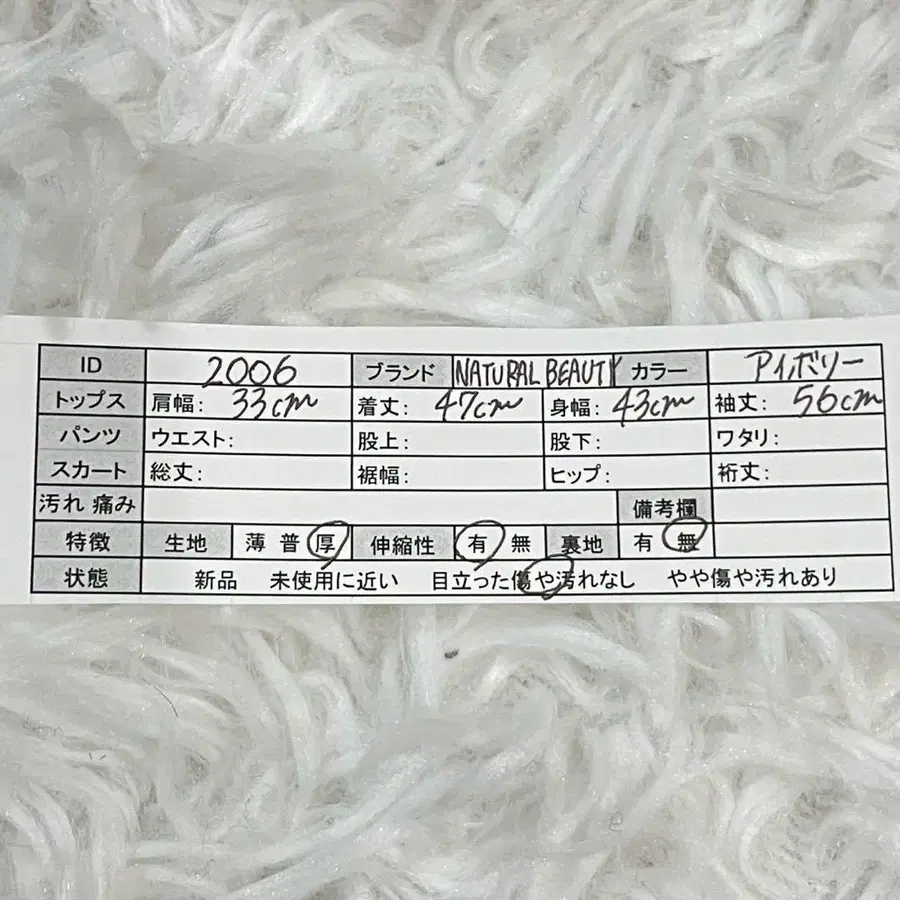 ID 2006 ブランド NATURAL BEAUTY カラー アイボリー
トップス 肩幅: 33cm 着丈: 47cm 身幅: 43cm 袖丈: 56cm
パンツ ウエスト: 股上: 股下: ワタリ:
スカート 総丈: 裾幅: ヒップ: 裄丈:
汚れ 痛み 備考欄
特徴 生地 薄 普 厚 伸縮性 有 無 裏地 有 無
状態 新品 未使用に近い 目立った傷や汚れなし やや傷や汚れあり